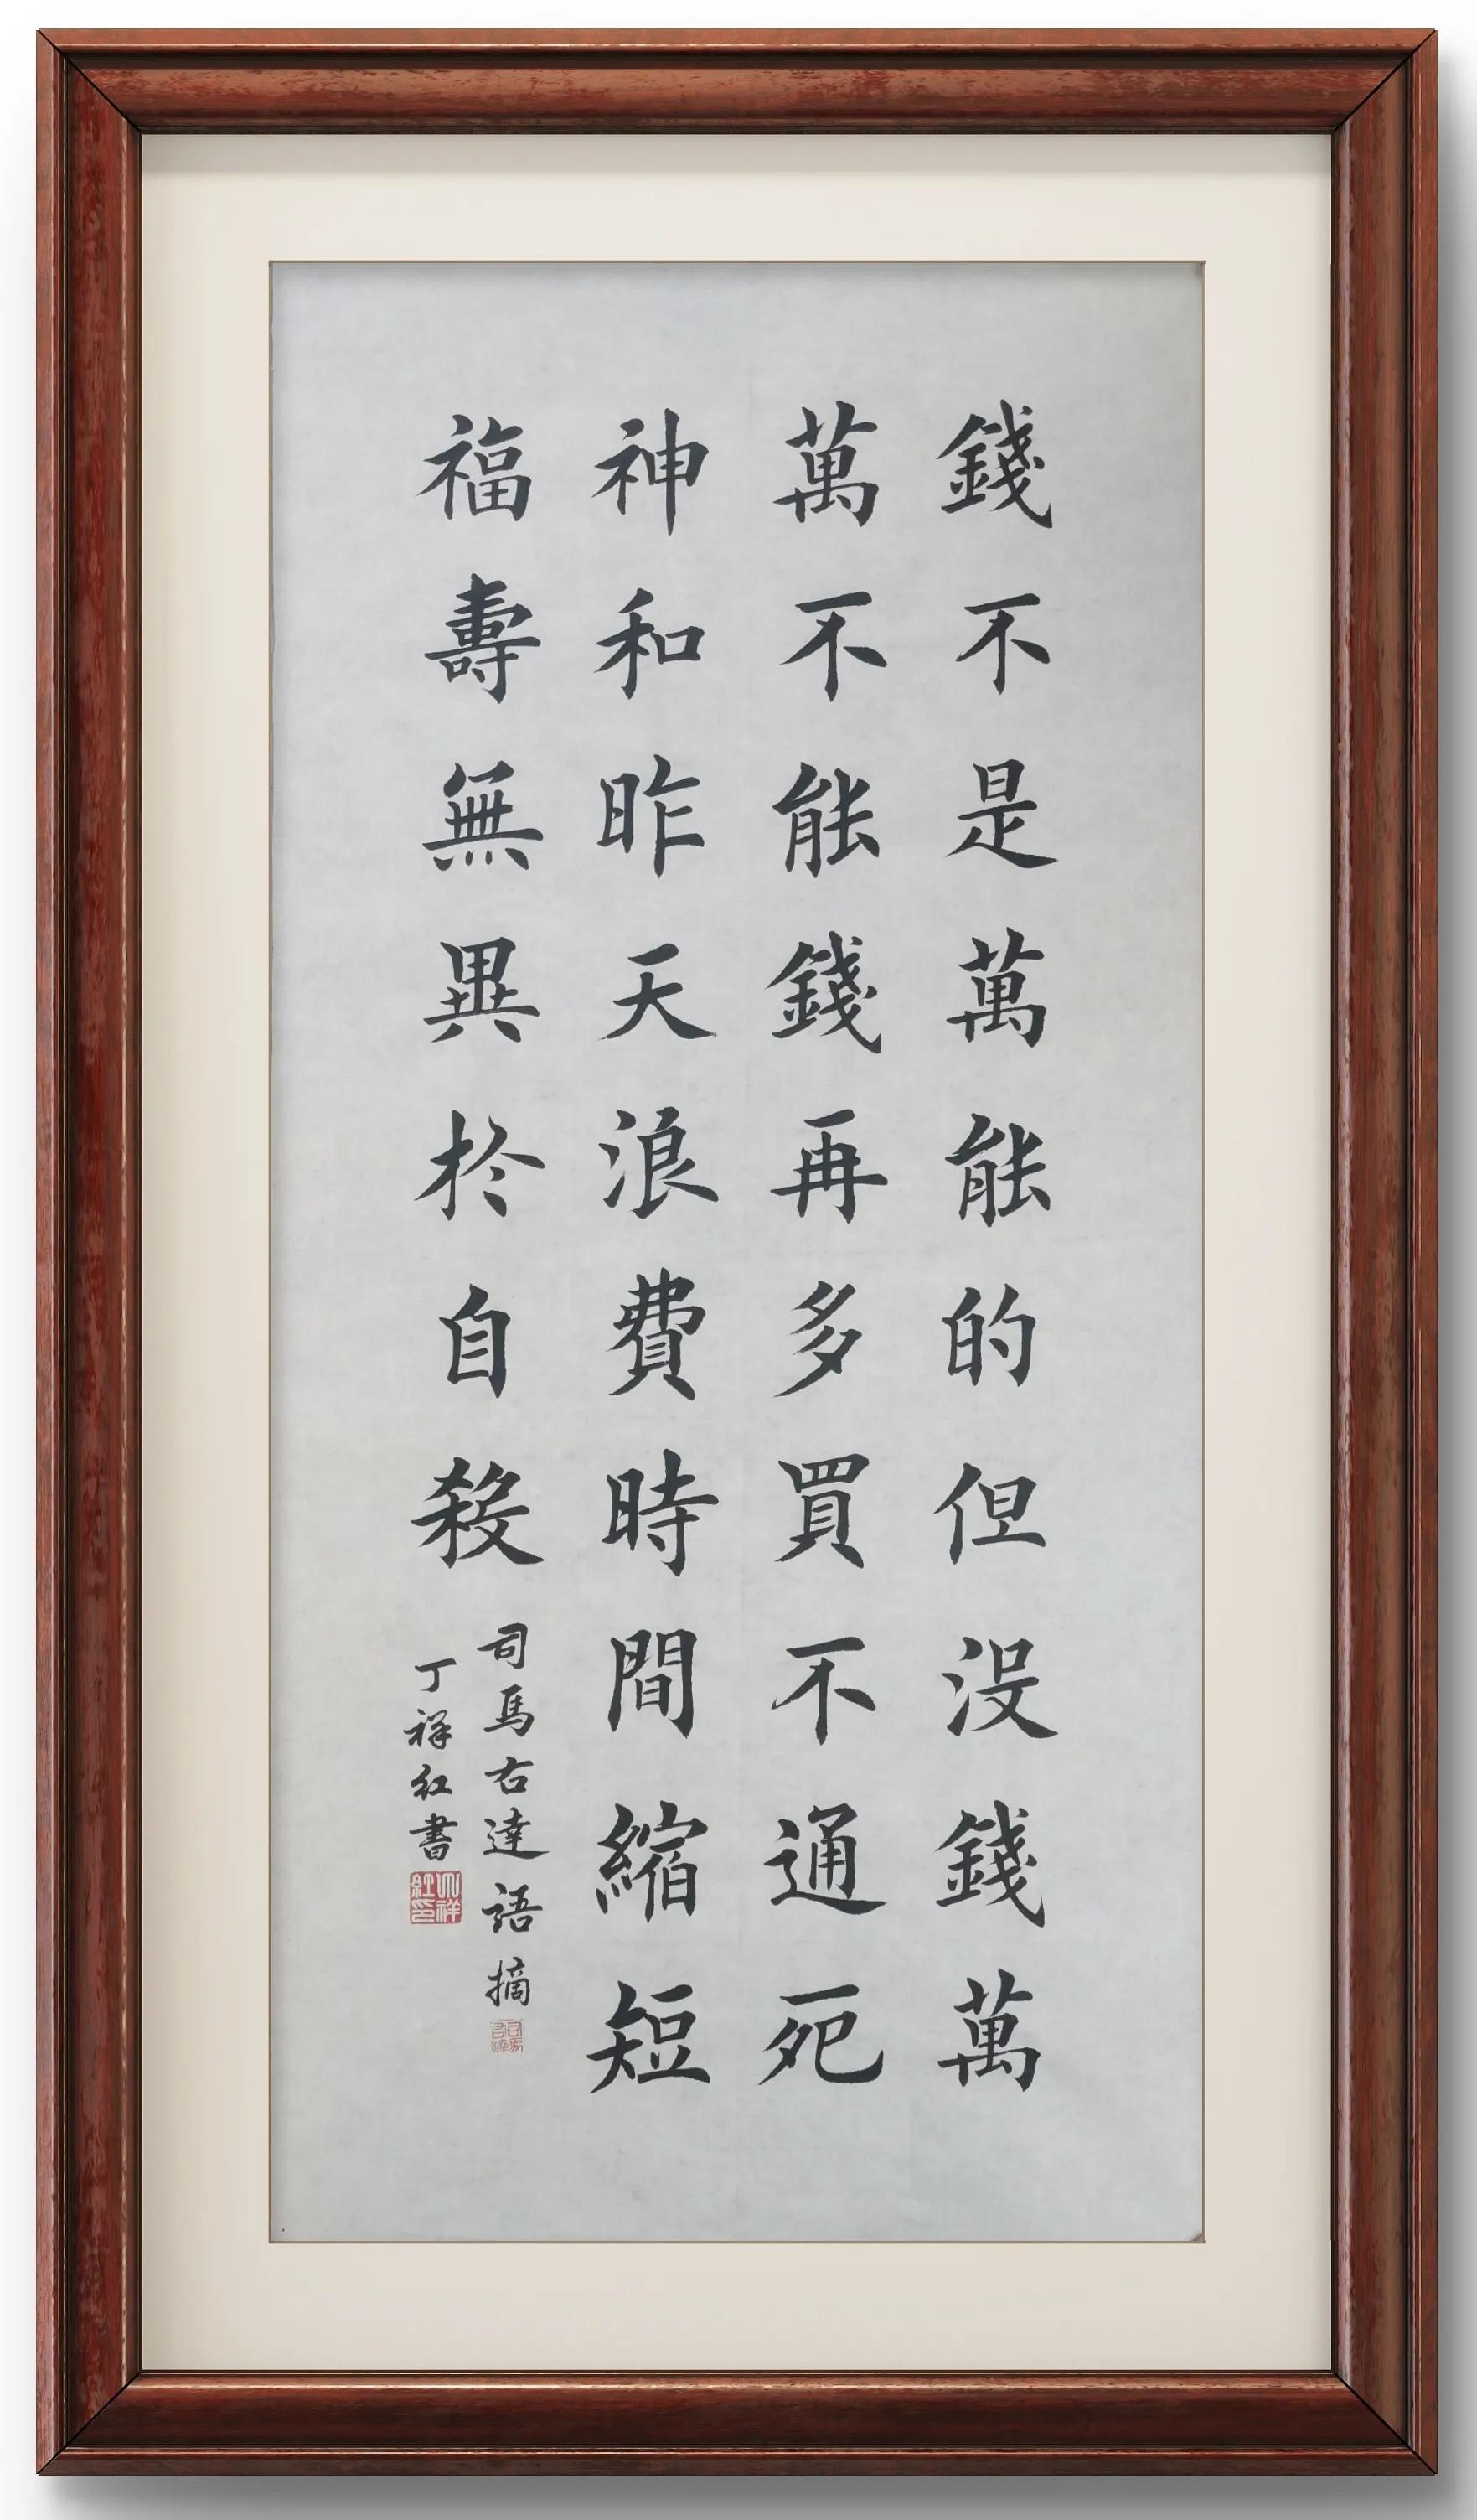 錢不是萬能的但沒錢萬
萬不能錢再多買不通死
神和昨天浪費時間縮短
福壽無異於自殺
司馬右達語摘
丁祥紅書